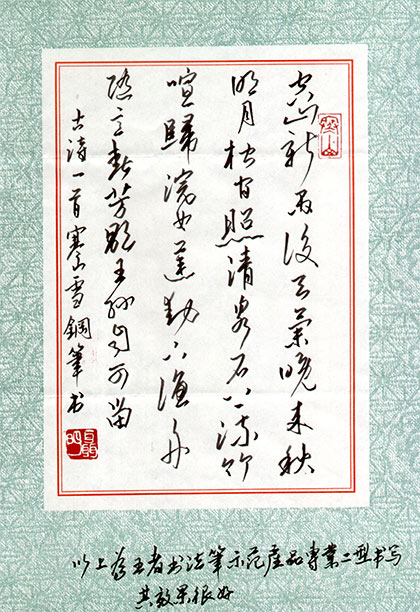 空山新雨後天氣晚来秋
明月松间照清泉石上流竹
喧歸浣女蓮動下漁舟
随意春芳歇王孫自可留
古诗一首寒山雪鋼筆书
以上為王者书法筆示范産品專業二型书写
其效果很好